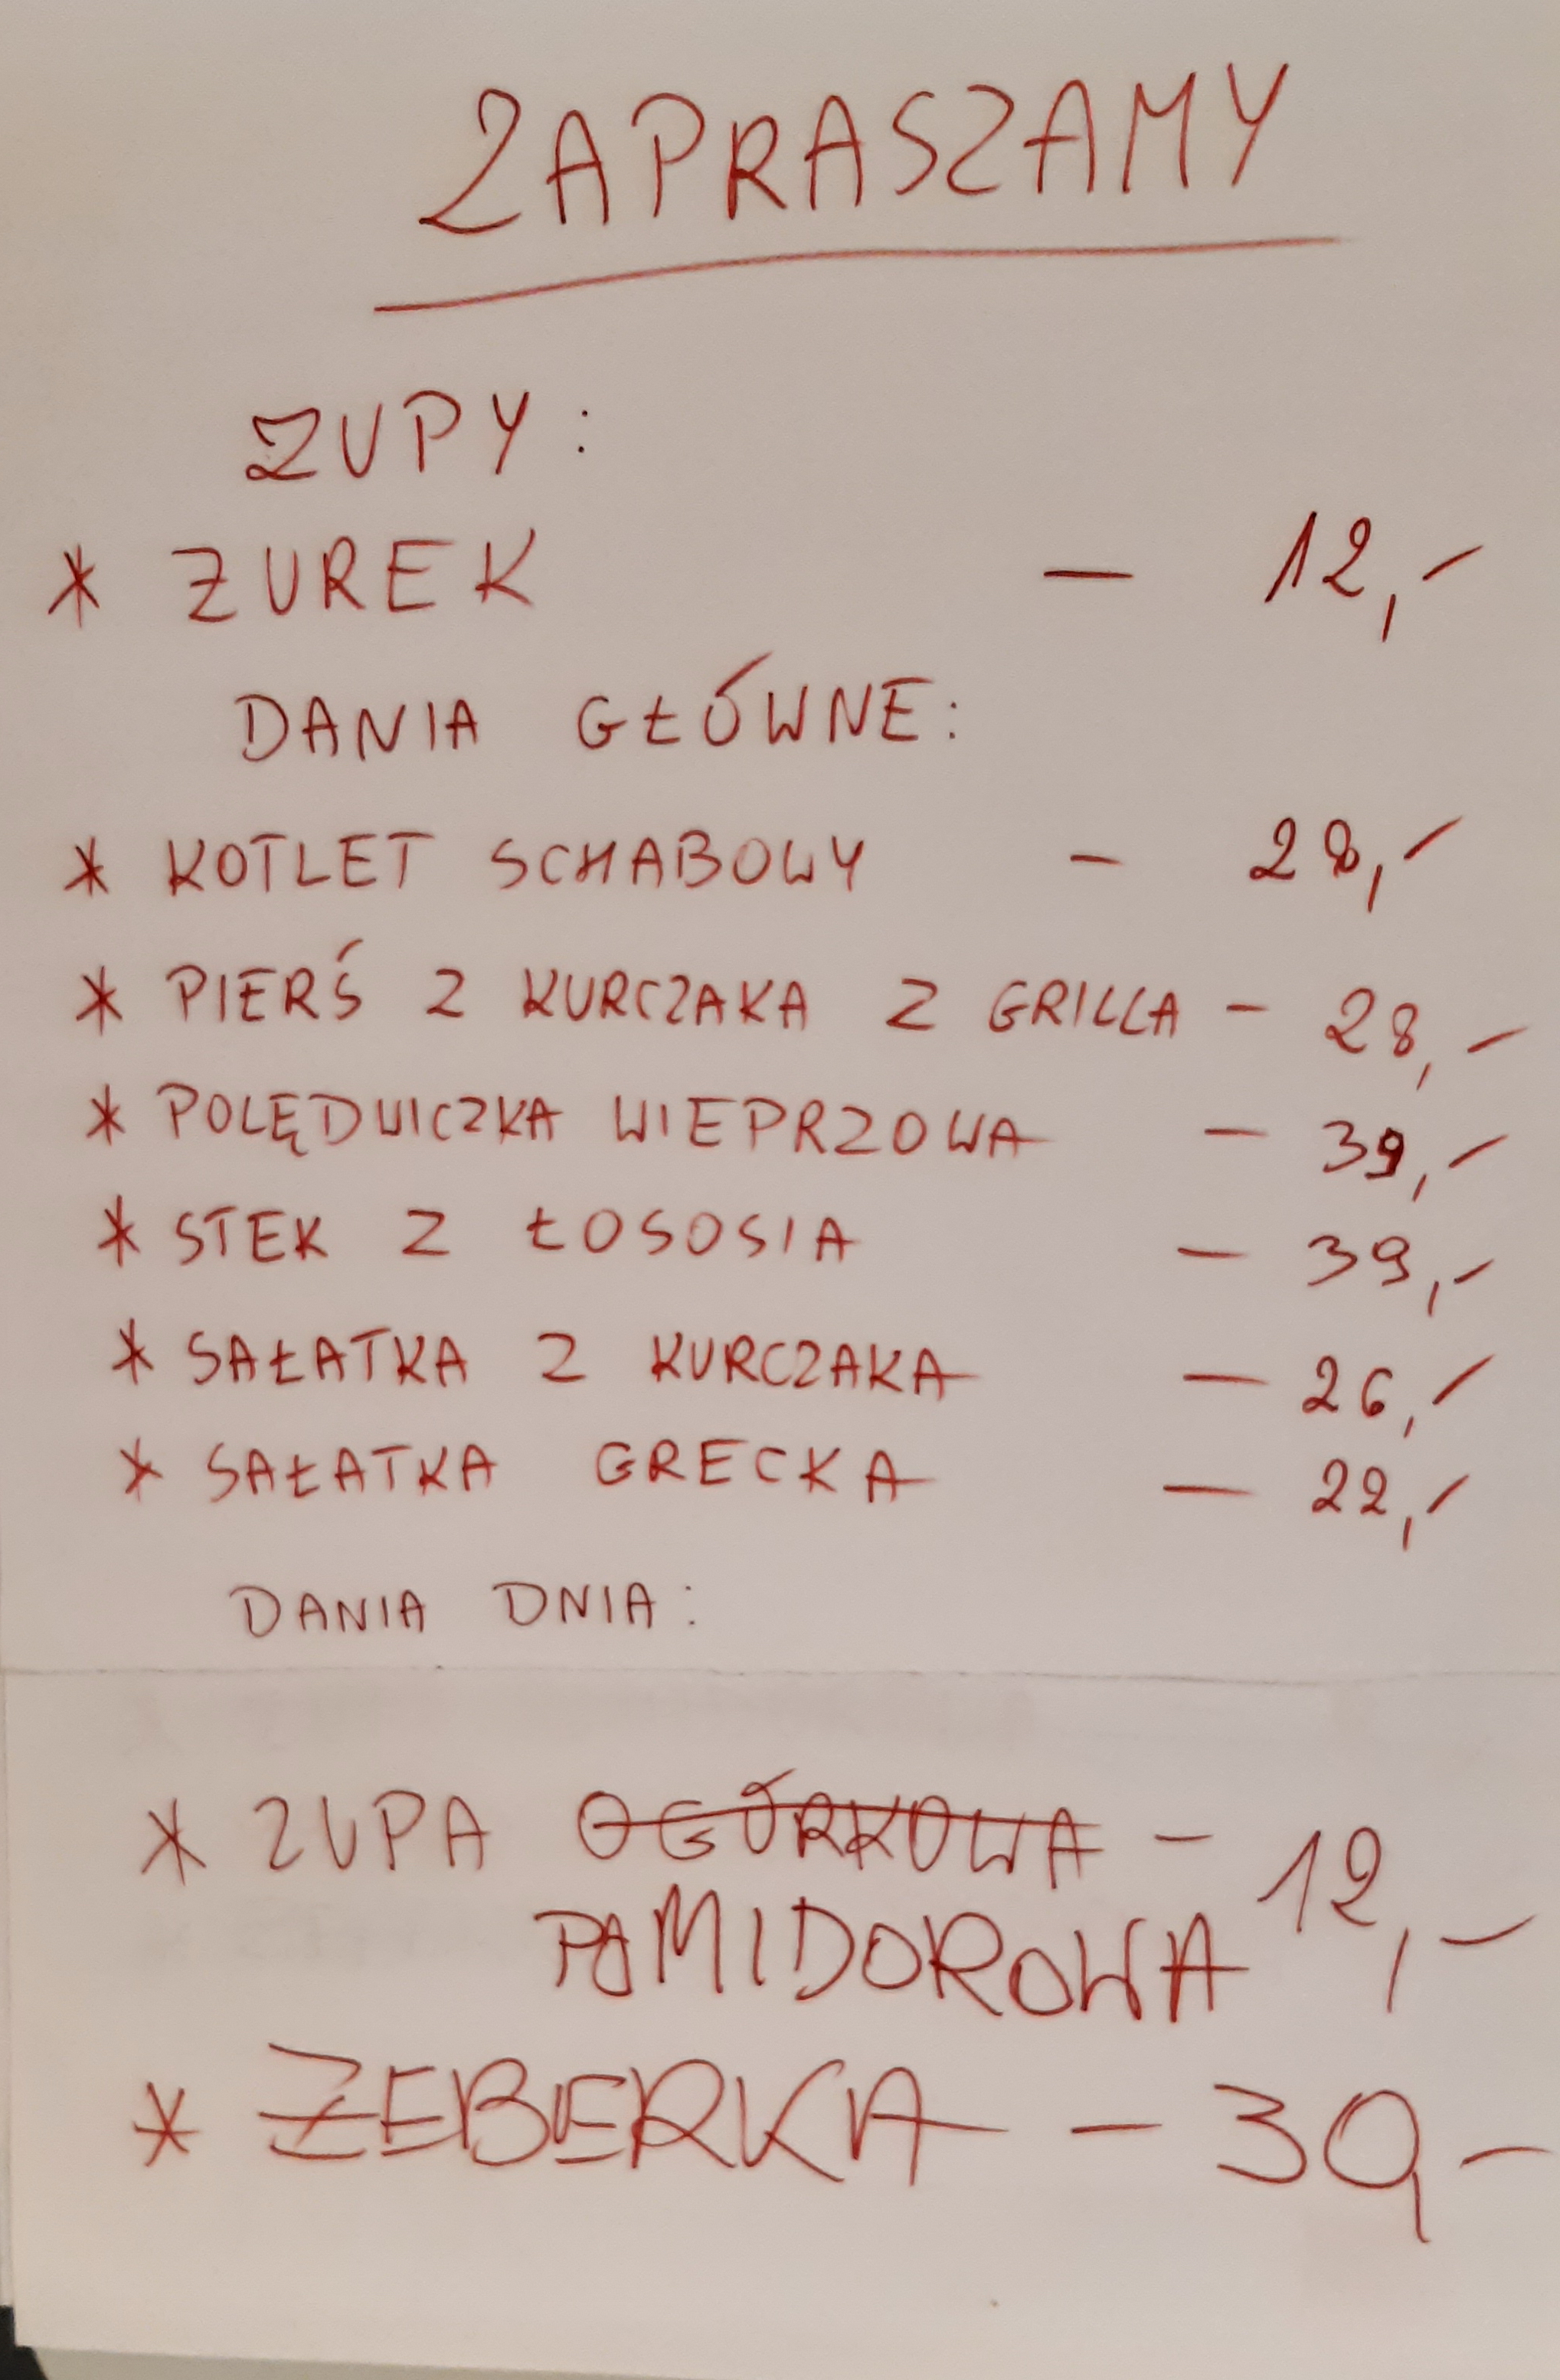 ZAPRASZAMY
ZUPY:
* ŻUREK - 12,-
DANIA GŁÓWNE:
* KOTLET SCHABOWY - 28,-
* PIERŚ Z KURCZAKA Z GRILLA - 28,-
* POLĘDWICZKA WIEPRZOWA - 39,-
* STEK Z ŁOSOSIA - 39,-
* SAŁATKA Z KURCZAKA - 26,-
* SAŁATKA GRECKA - 22,-
DANIA DNIA:
* ZUPA OGÓRKOWA - 12,-
POMIDOROWA
* ŻEBERKA - 30,-